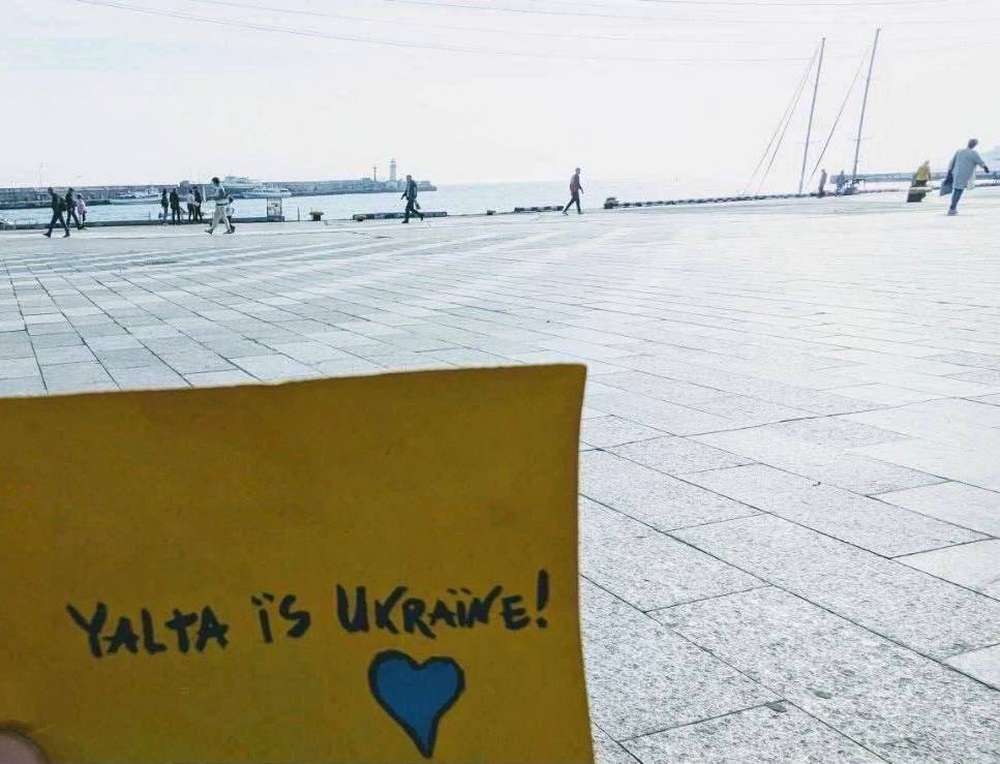 YALTA ïS UKRAïNE!